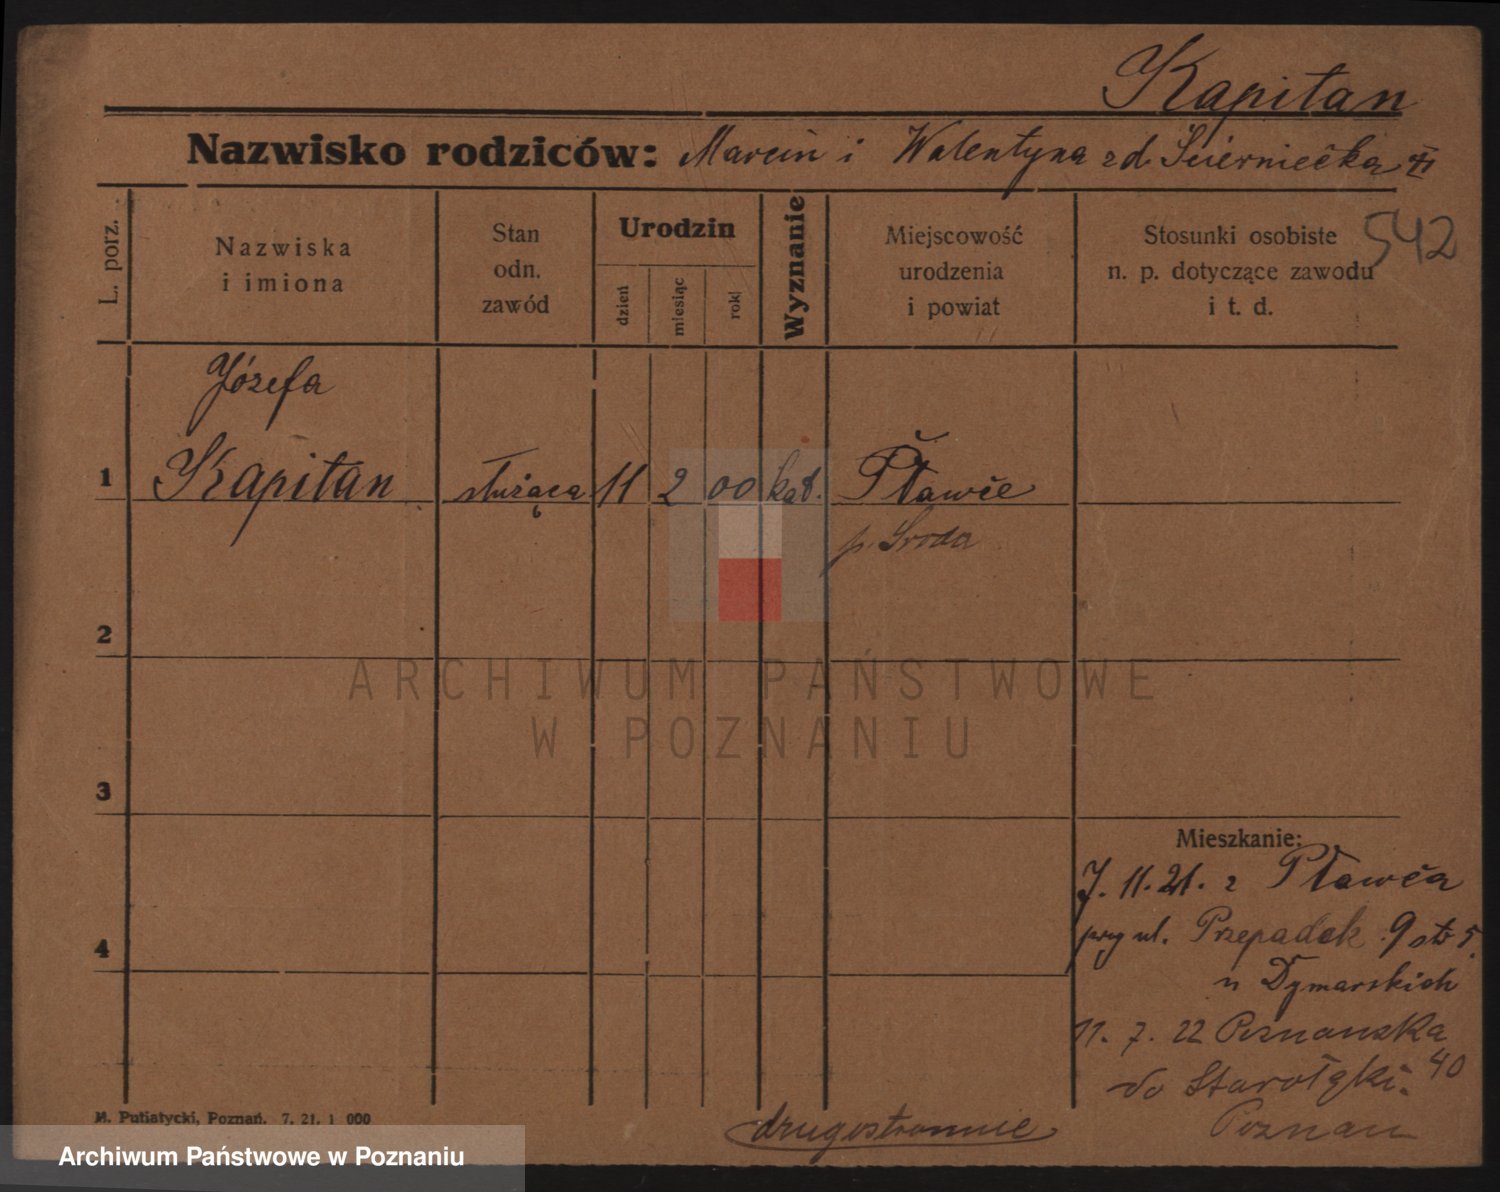 Kapitan
Nazwisko rodziców: Marcin i Walentyna zd.
542
L. porz.
Nazwiska i imiona
Stan odn. zawód
Urodzin
dzień
miesiąc
rok
Wyznanie
Miejscowość urodzenia i powiat
Stosunki osobiste n. p. dotyczące zawodu i t. d.
Józefa
1 Kapitan służąca 11 2 00 kat. Pławce
p. Sroda
2
3
4
Mieszkanie:
7. 11. 21. z Pławca
przy ul. Przepadek 9 otr 5.
u Dymarskich
11. 7. 22 Poznanska
40
do Starołęki.
Poznan
drugostronnie
M. Putiatycki, Poznań. 7. 21. 1 000
ARCHIWUM PAŃSTWOWE
W POZNANIU
Archiwum Państwowe w Poznaniu